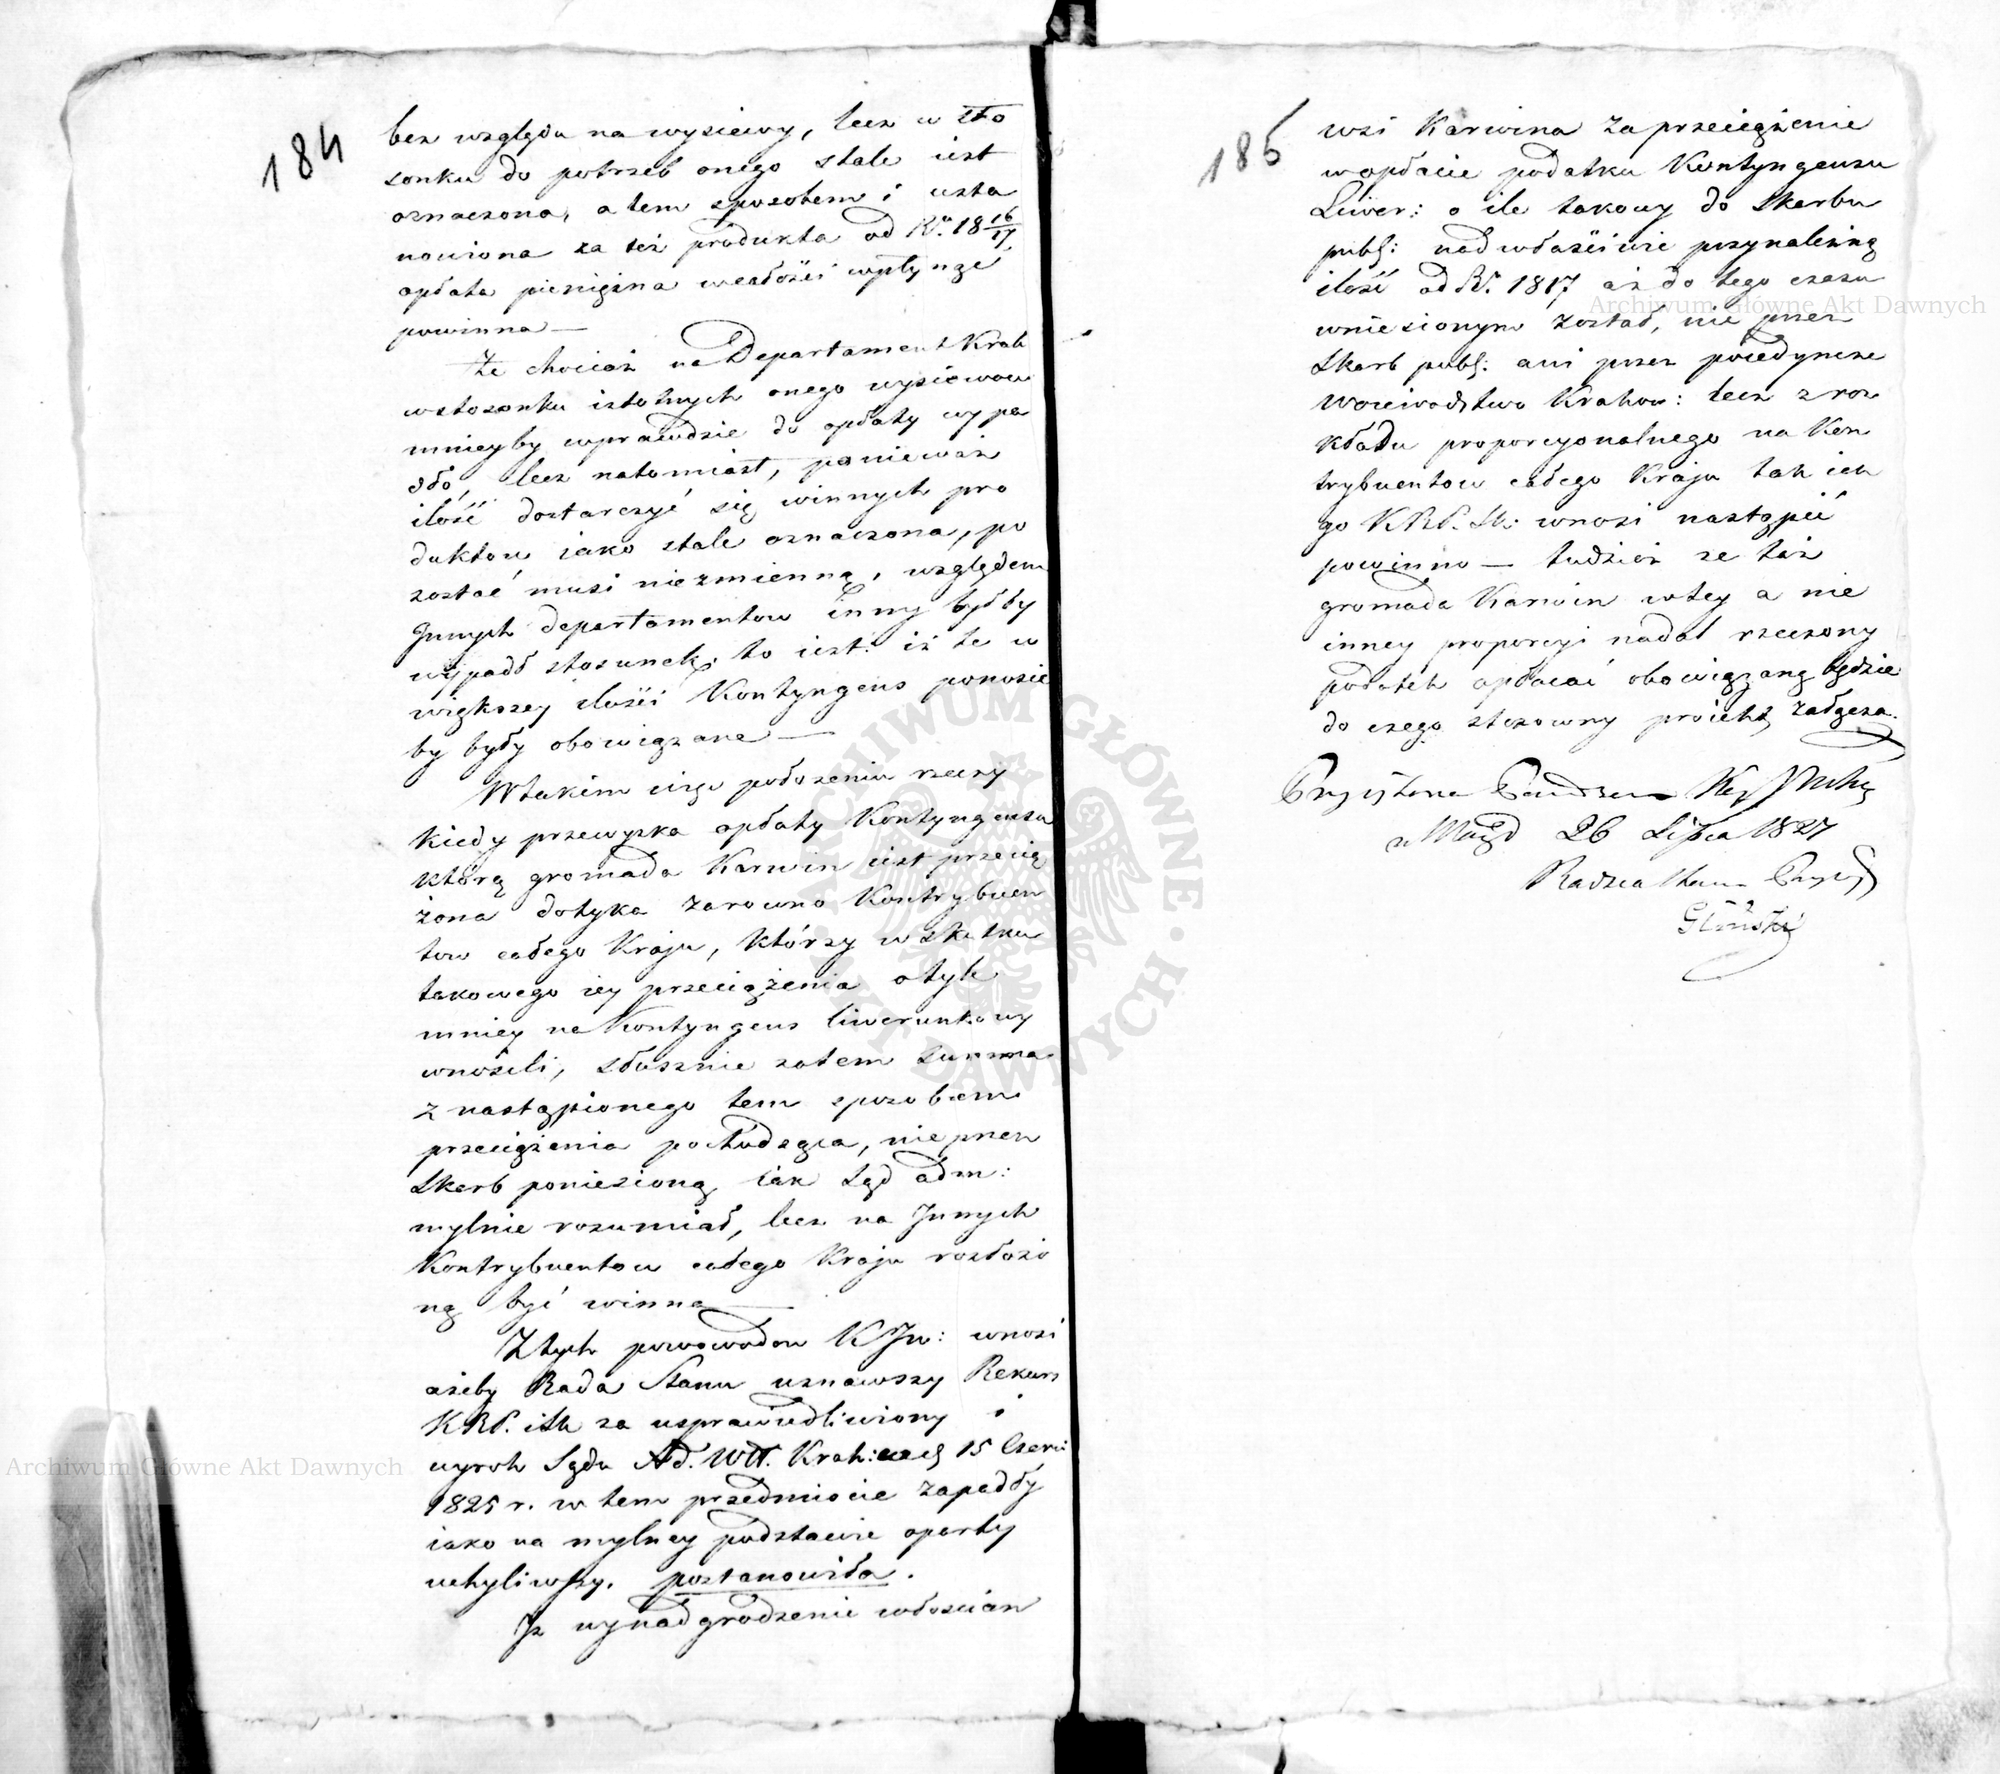 184
bez względu na wysiewy, lecz w sto
sonku do potrzeb onego stale iest
oznaczona, a tem sposobem i usta
nowiona za też produkta od Ru. 18 16/17
opłata pieniężna w całości wpłynąć
powinna —
Że chociaż na Departament Krak
w stosonku istotnych onego wysiewow
mnieyby wprawdzie do opłaty wypa
dło, lecz natomiast, ponieważ
ilość dostarczyć się winnych pro
duktow, iako stale oznaczona, po
zostać musi niezmienną, względem
Innych departamentow inny byłby
wypadł stosunek, to iest: iż te w
większey ilości Kontyngens ponosić
by były obowiązane —
W takim więc położeniu rzeczy
kiedy przewyżka opłaty Kontyngensu
którą gromada Karwin iest przecią
żona dotyka zarowno Kontrybuen
tow całego Kraju, którzy w skutku
takowego iey przeciążenia o tyle
mniey na Kontyngens liwerunkowy
wnosili, słusznie zatem summa
z nastąpionego tem sposobem
przeciążenia pochodząca, nie przez
Skarb poniesioną iak Sąd adm:
mylnie rozumiał, lecz na Innych
Kontrybuentow całego Kraju rozłożo
ną być winna —
Z tych powowodow K Jn: wnosi
ażeby Rada Stanu uznawszy Rekurs
KRP. i Sk za usprawiedliwiony i
wyrok Sądu Ad. Wtt. Krak: 15 Czerw:
1825 r. w tem przedmiocie zapadły
iako na mylney podstawie oparty
uchyliwszy, postanowiła.
Iż wynadgrodzenie włoscian
Archiwum Główne Akt Dawnych
185
wsi Karwina za przeciążenie
w opłacie podatku Kontyngensu
Liwer: o ile takowy do Skarbu
publ: nad właściwie przynależną
ilość od Ru. 1817 aż do tego czasu
wniesionym został, nie przez
Skarb publ: ani przez poiedyncze
Woiewodztwo Krakow: lecz z roz
kładu proporcyonalnego na Kon
trybuentow całego Kraju tak iak
go KRP. Sk: wnosi nastąpić
powinno — tudzież że taż
gromada Karwin w tey a nie
inney proporcyi nadal rzeczony
podatek opłacać obowiązaną będzie
do czego stosowny proiekt załącza.
26 Lipca 1827
Radzca Stanu
Gliński
Archiwum Główne Akt Dawnych
ARCHIWUM GŁÓWNE AKT DAWNYCH